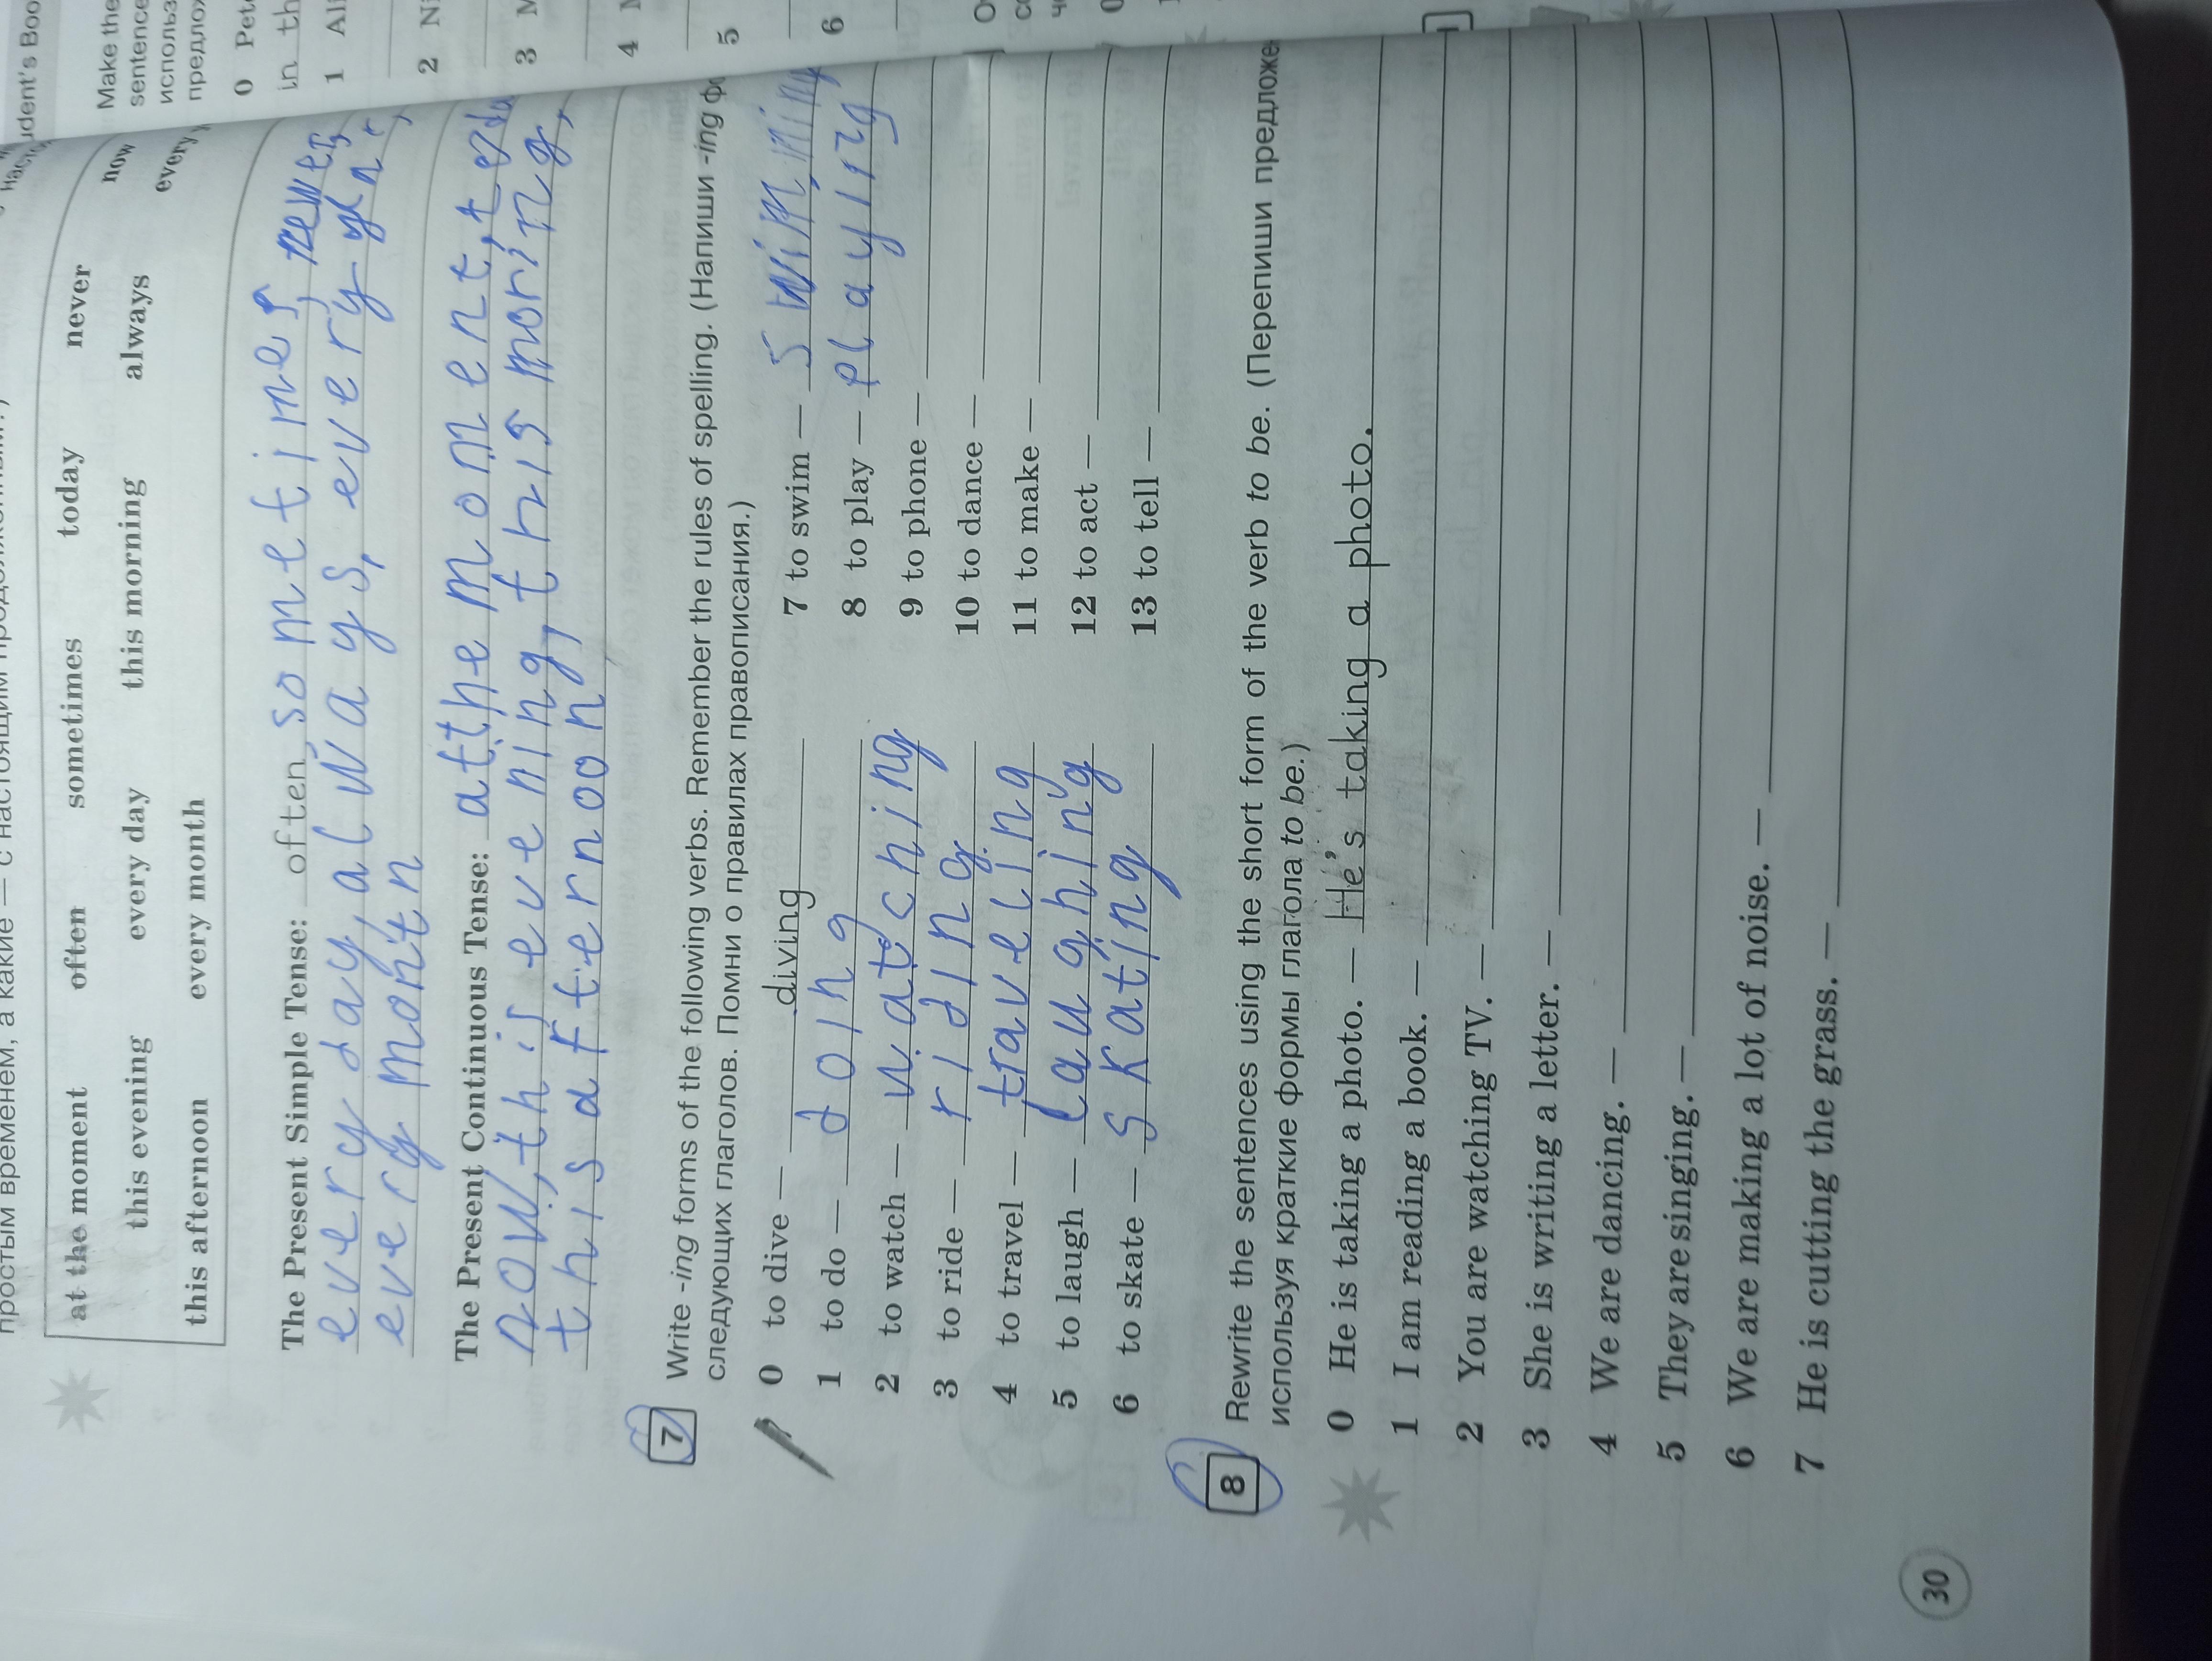 at the moment often sometimes today never now
this evening every day this morning always every
this afternoon every month
The Present Simple Tense: often, sometimes, never,
every day, always, every
every month
The Present Continuous Tense: at the moment,
now, this evening, this morning,
this afternoon,
7 Write -ing forms of the following verbs. Remember the rules of spelling. (Напиши -ing
следующих глаголов. Помни о правилах правописания.)
0 to dive — diving
1 to do — doing
2 to watch — watching
3 to ride — riding
4 to travel — traveling
5 to laugh — laughing
6 to skate — skating
7 to swim — swimming
8 to play — playing
9 to phone —
10 to dance —
11 to make —
12 to act —
13 to tell —
8 Rewrite the sentences using the short form of the verb to be. (Перепиши
используя краткие формы глагола to be.)
0 He is taking a photo. — He's taking a photo.
1 I am reading a book. —
2 You are watching TV. —
3 She is writing a letter. —
4 We are dancing. —
5 They are singing. —
6 We are making a lot of noise. —
7 He is cutting the grass. —
30
Make the
0
in
1
2
3
4
5
6